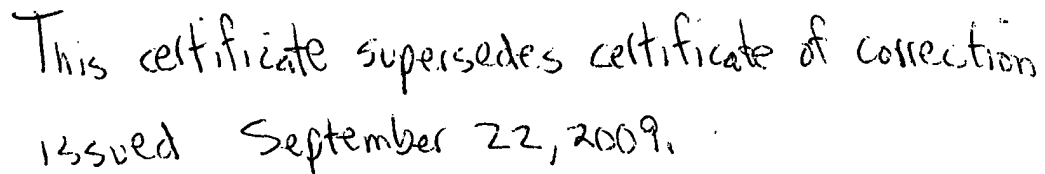 This certificate supersedes certificate of correction
issued September 22, 2009.